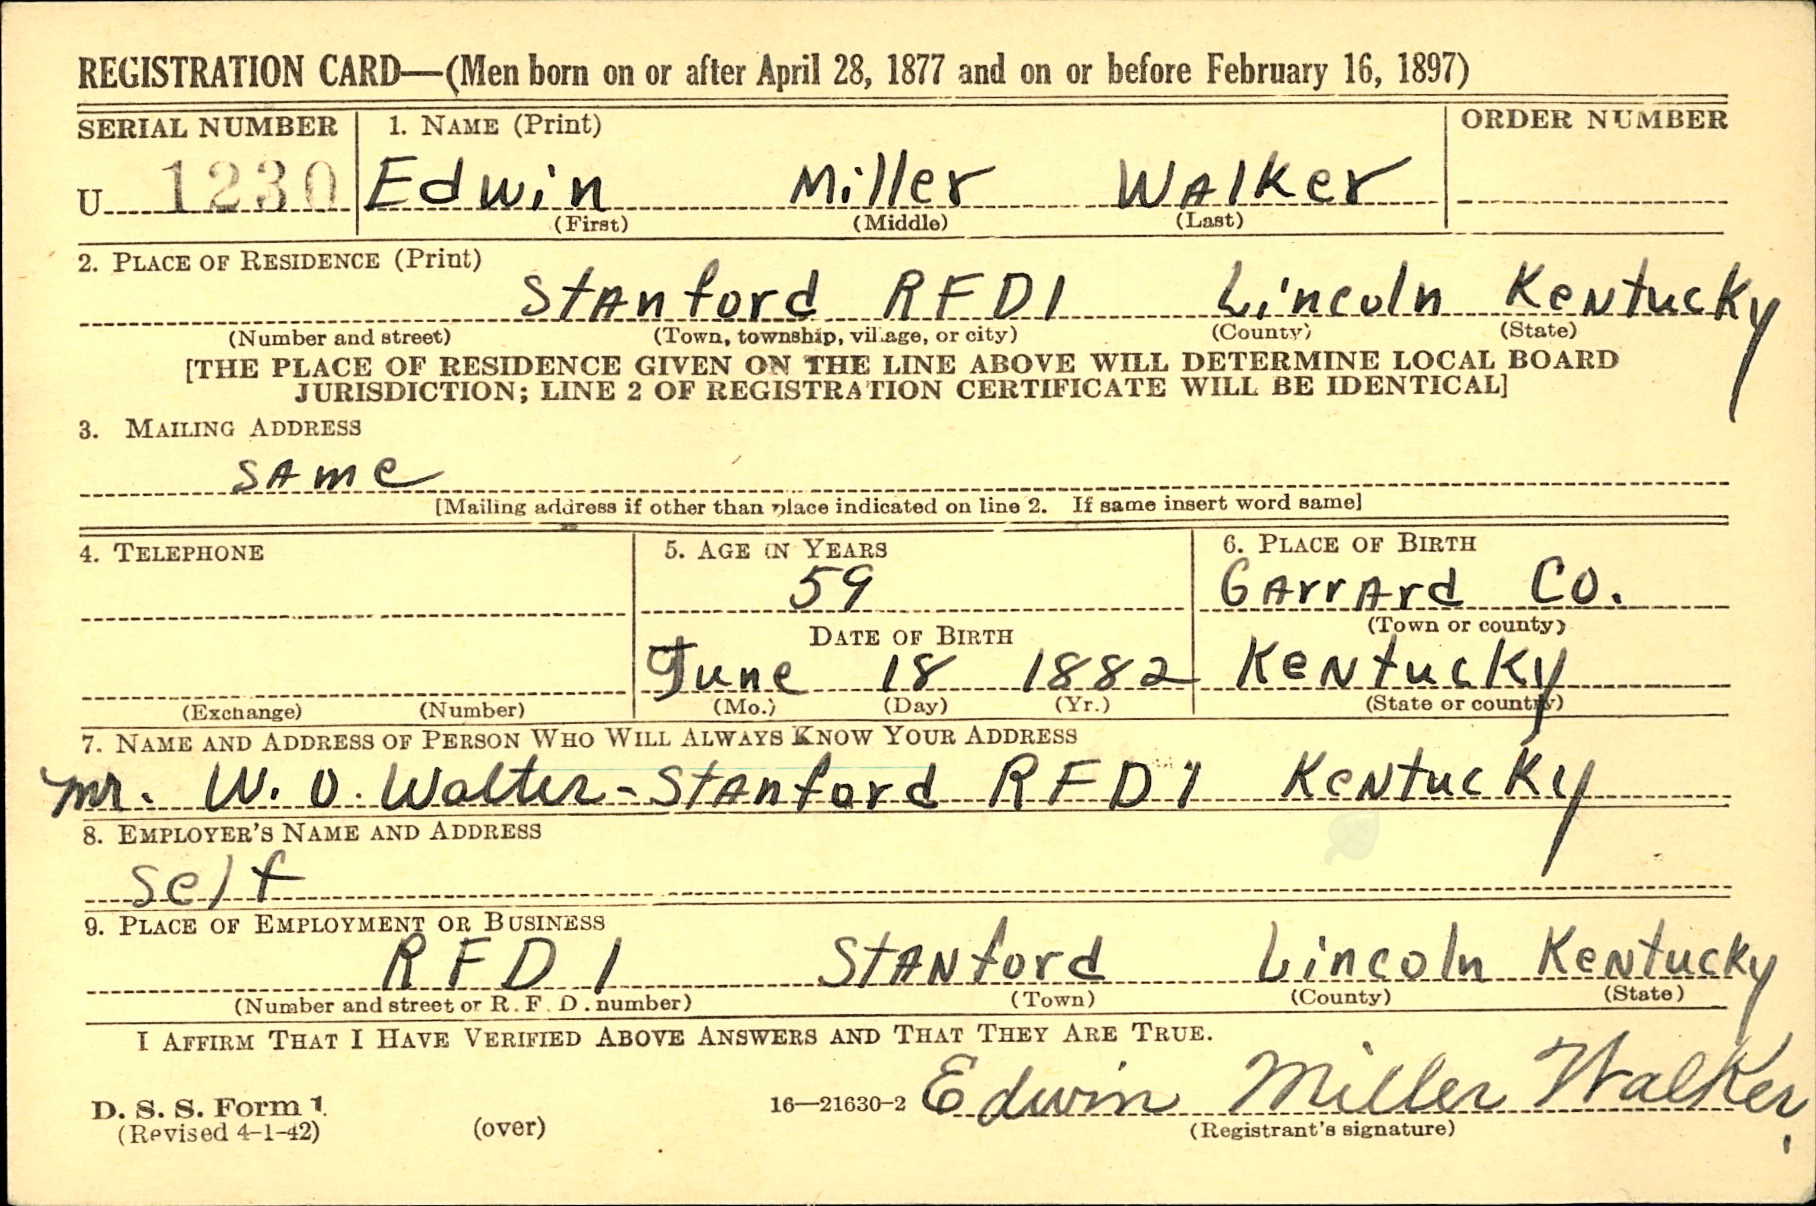 REGISTRATION CARD—(Men born on or after April 28, 1877 and on or before February 16, 1897)
SERIAL NUMBER 1. NAME (Print) ORDER NUMBER
U 1230 Edwin Miller Walker
(First) (Middle) (Last)
2. PLACE OF RESIDENCE (Print)
Stanford RFD1 Lincoln Kentucky
(Number and street) (Town, township, village, or city) (County) (State)
[THE PLACE OF RESIDENCE GIVEN ON THE LINE ABOVE WILL DETERMINE LOCAL BOARD
JURISDICTION; LINE 2 OF REGISTRATION CERTIFICATE WILL BE IDENTICAL]
3. MAILING ADDRESS
same
[Mailing address if other than place indicated on line 2. If same insert word same]
4. TELEPHONE 5. AGE IN YEARS 6. PLACE OF BIRTH
59 Garrard Co.
(Town or county)
DATE OF BIRTH
June 18 1882 Kentucky
(Exchange) (Number) (Mo.) (Day) (Yr.) (State or country)
7. NAME AND ADDRESS OF PERSON WHO WILL ALWAYS KNOW YOUR ADDRESS
Mr. W. O. Walter - Stanford RFD 1 Kentucky
8. EMPLOYER'S NAME AND ADDRESS
self
9. PLACE OF EMPLOYMENT OR BUSINESS
RFD 1 Stanford Lincoln Kentucky
(Number and street or R. F. D. number) (Town) (County) (State)
I AFFIRM THAT I HAVE VERIFIED ABOVE ANSWERS AND THAT THEY ARE TRUE.
D. S. S. Form 1 16—21630-2 Edwin Miller Walker
(Revised 4-1-42) (over) (Registrant's signature)